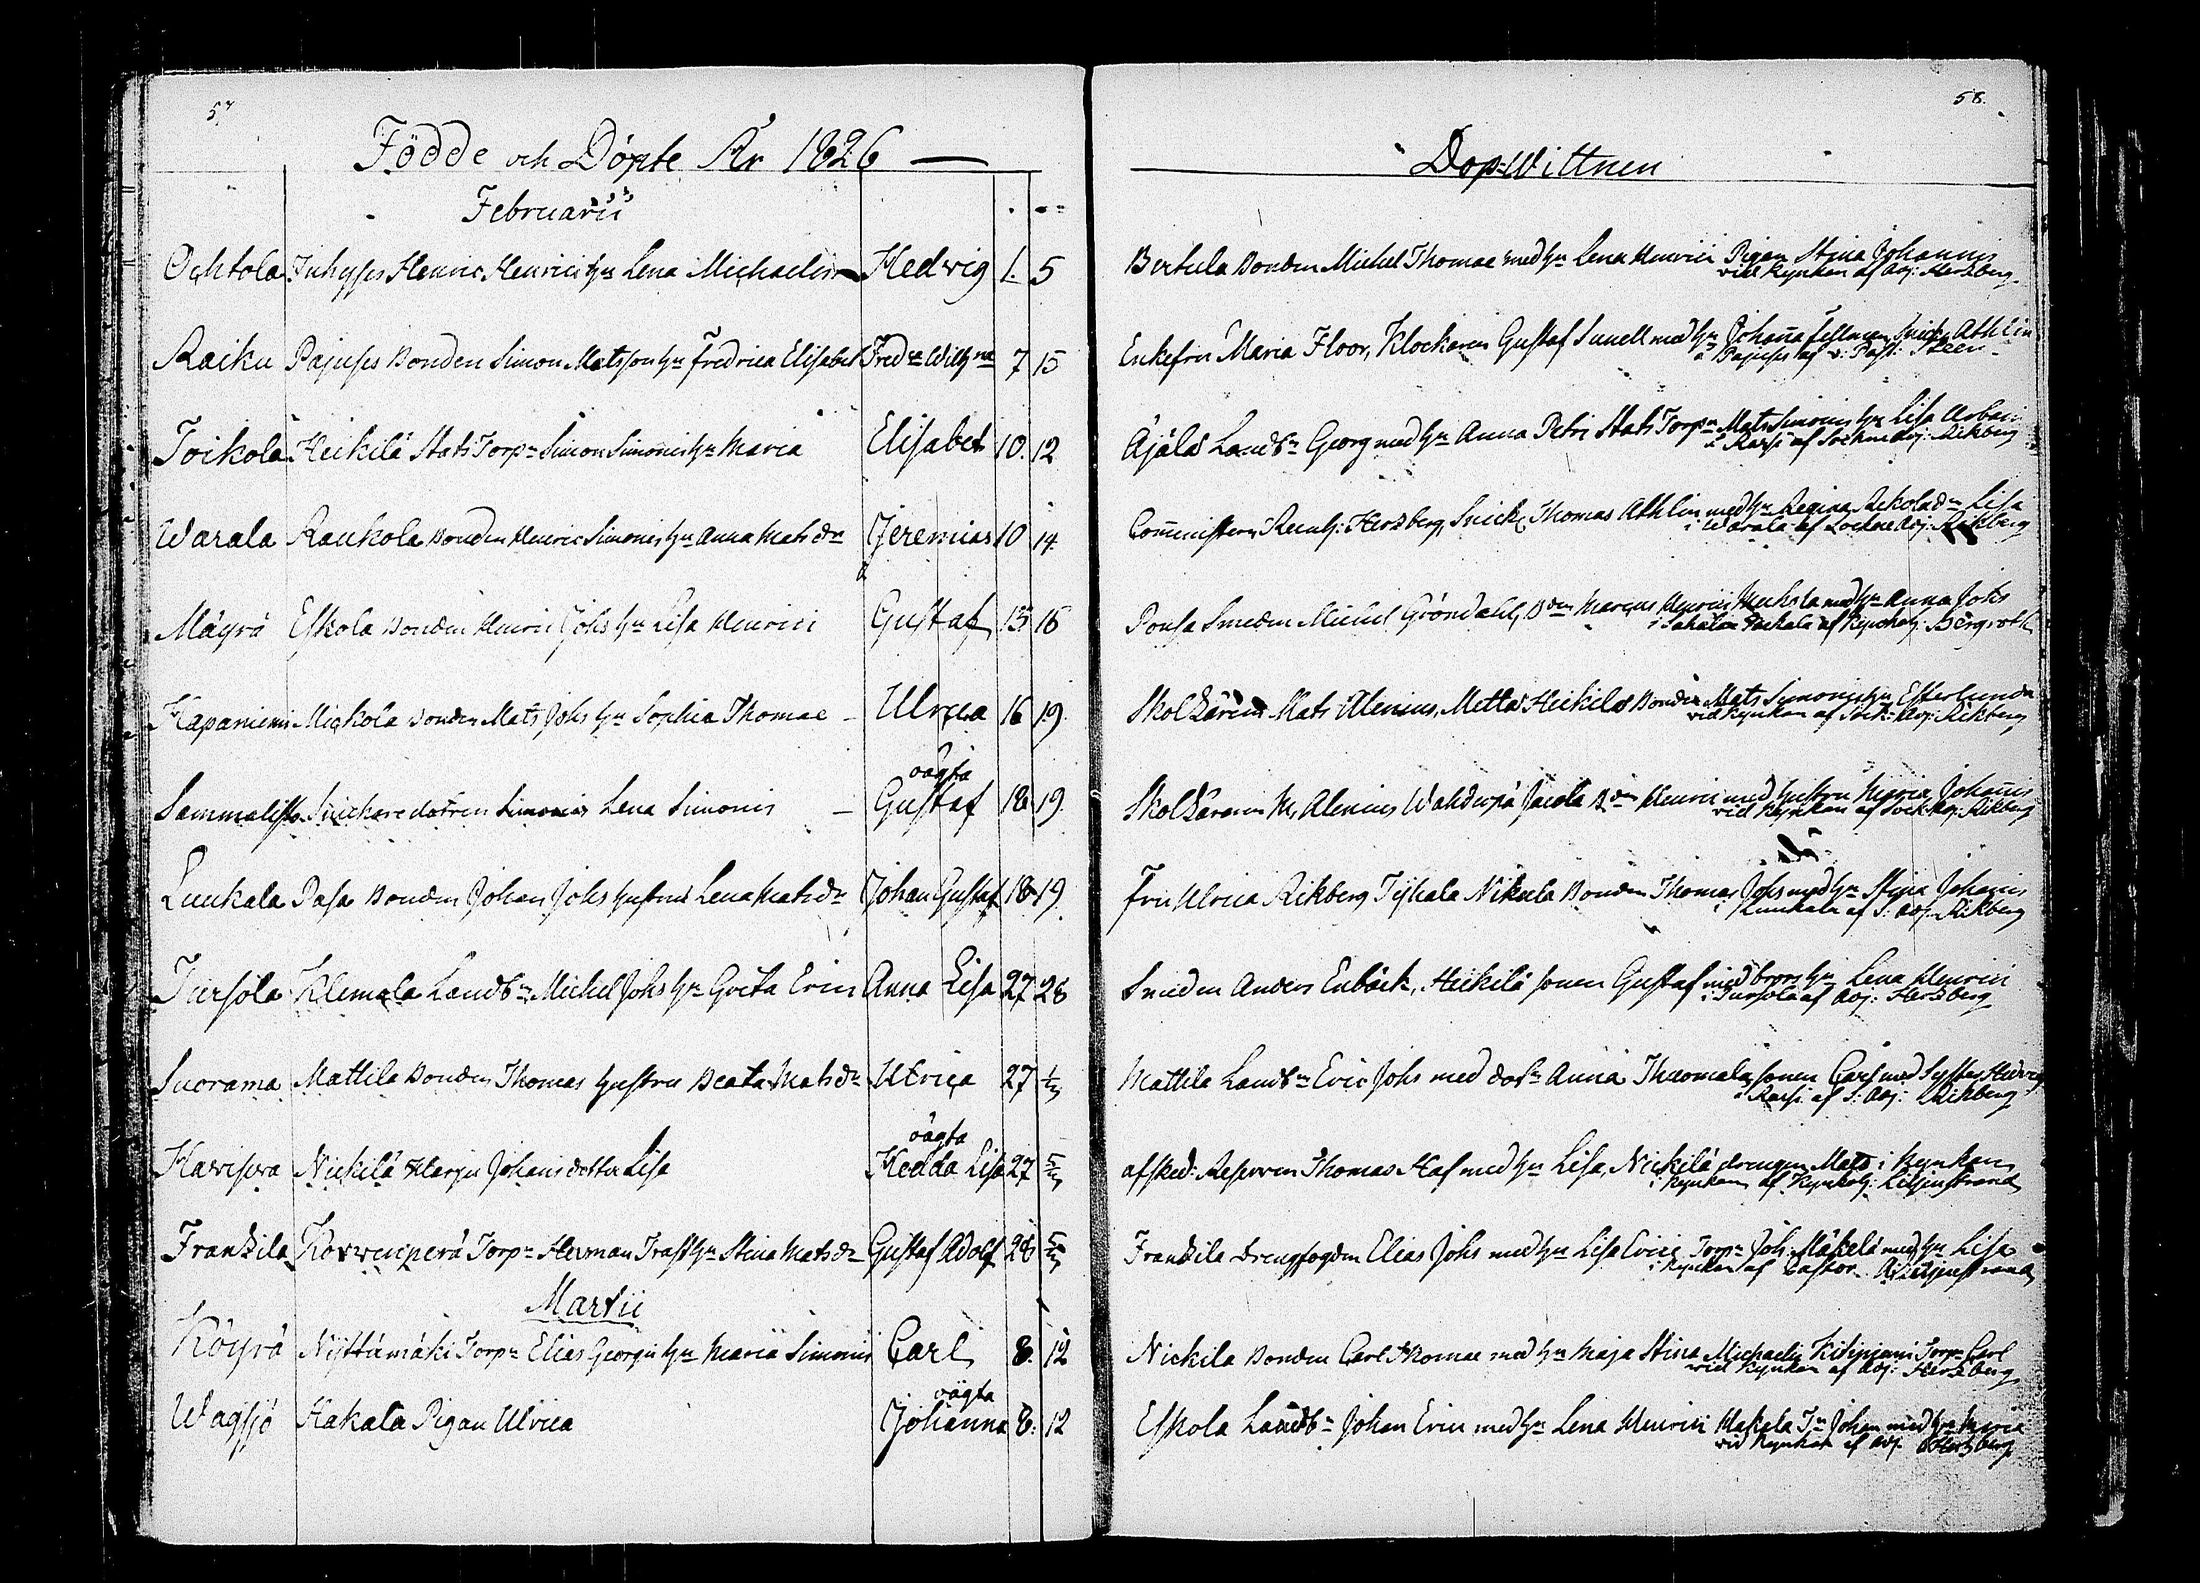 57
Födde och Döpte År 1826
Februarii
Ochtola Juhyses Henric Henrici hu Lena Michaelis Hedwig 1. 5
Raiku Pajuses Bonden Simon Matsson hu Fredrica Elisabet Fredca Wilhna 7 15
Toikola Heikilä Stats Torpn Simon Simonis hu Maria Elisabet 10. 12
Warala Raukola Bonden Henric Simonis hu Anna Mats dr Jeremias 10 14.
Mäyrä Eskola Bonden Henric Johs hu Lisa Henrici Gustaf 13 16
Hapaniemi Mickola Bonden Mats Johs hu Sophia Thomae Ulrica 16 19.
oägta
Sammalisto Snickaredottren Lena Simonis Gustaf 18 19.
Luukala Pasa Bonden Johan Johs hustru Lena Mats dr Johan Gustaf 18 19.
Tursola Klemola Landbn Michel Johs hu Greta Erici Anna Lisa 27 28
Suorama Mattila Bonden Thomas hustru Beata Mats dr Ulrica 27 1/3
oägta
Nickilä Harju Johanis dotter Lisa Hedda Lisa 27 5/3
Frantzila Torpn Herman Trast hu Stina Mats dr Gustaf Adolf 28 5/3
Martii
Köyrä Nyttämäki Torpn Elias Georgii hu Maria Simonis Carl 8. 12
oägta
Wagsjö Hakala Pigan Ulrica Johanna 8. 12
58.
Dop-Wittnen
Bertula Bonden Michel Thomae med hu Lena Henrici Pigan Stina Johannis
vid Kyrkan af Adj: Hertzberg
Enkefru Maria Floor, Klockaren Gustaf Sunell med hu Johaña Fellman Snick Athlin
i Pajuses af v: Past:
Äjälä Landbn Georg med hu Anna Petri Stats Torpn Mats Simonis hu Lisa
i af Sockne Adj: Rikberg
Comministern Hertzberg, Snick Thomas Athlin med hu Regina, Rekola dr Lisa
i Warala af Sockne Adj: Rikberg
Ponsa Smeden Michel Gröndahl, Bden Marcus Henrici med hu Anna Johs
af Bergroth
Skolläraren Mats Alenius, Mettä Heikilä Bonden Mats Simonis hu
vid Kyrkan af Sock: Adj: Rikberg
Skolläraren M. Alenius Jacola Bden Henric med hustru Maria Johañis
vid Kyrkan af Sock Adj: Rikberg
Fru Ulrica Rikberg Tijhala Nikula Bonden Thomas Johs med hu Stina Johañis
i Luukala af S: Adj: Rikberg
Smeden Anders Enbäck, Heikilä sonen Gustaf med brors hu Lena Henrici
i Tursola af Adj: Hertzberg
Mattila Landbn Eric Johs med dotr Anna sonen Carl med Syster Hedvig
i af S: Adj: Rikberg
afsked: Thomas Haf med hu Lisa, Nickilä drengen Mats i Kyrkan
i Kyrkan af Liljenstrand
Frantzila Drengfogden Elias Johs med hu Lisa Erici Torpn Joh Mäkelä med hu Lisa
i Kyrkan af Pastor Liljenstrand
Nickila Bonden Carl Thomae med hu Maja Stina Michaelis Torpn Carl
vid Kyrkan af Adj: Hertzberg
Eskola Landbn Johan Erici med hu Lena Henrici Hakala Tn Johan med hu Maria
vid Kyrkan af Adj Hertzberg